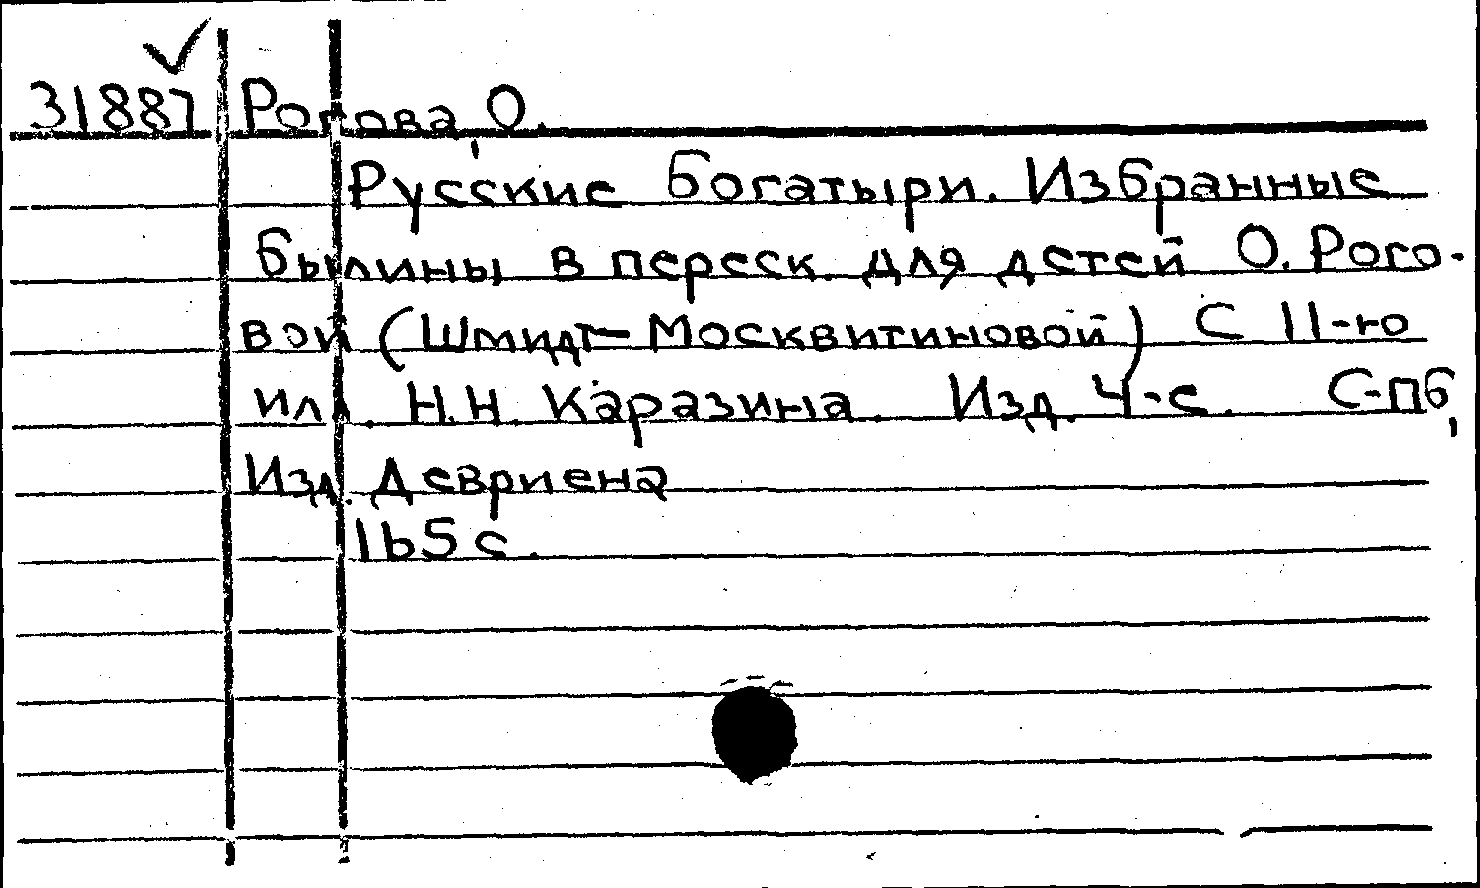 31887 Рогова, О.
Русские богатыри. Избранные
былины в переск. для детей О. Рого-
вой (Шмидт-Москвитиновой) С 11-ю
илл. Н.Н. Каразина. Изд. 4-е. С-Пб,
Изд. Девриена
165 с.